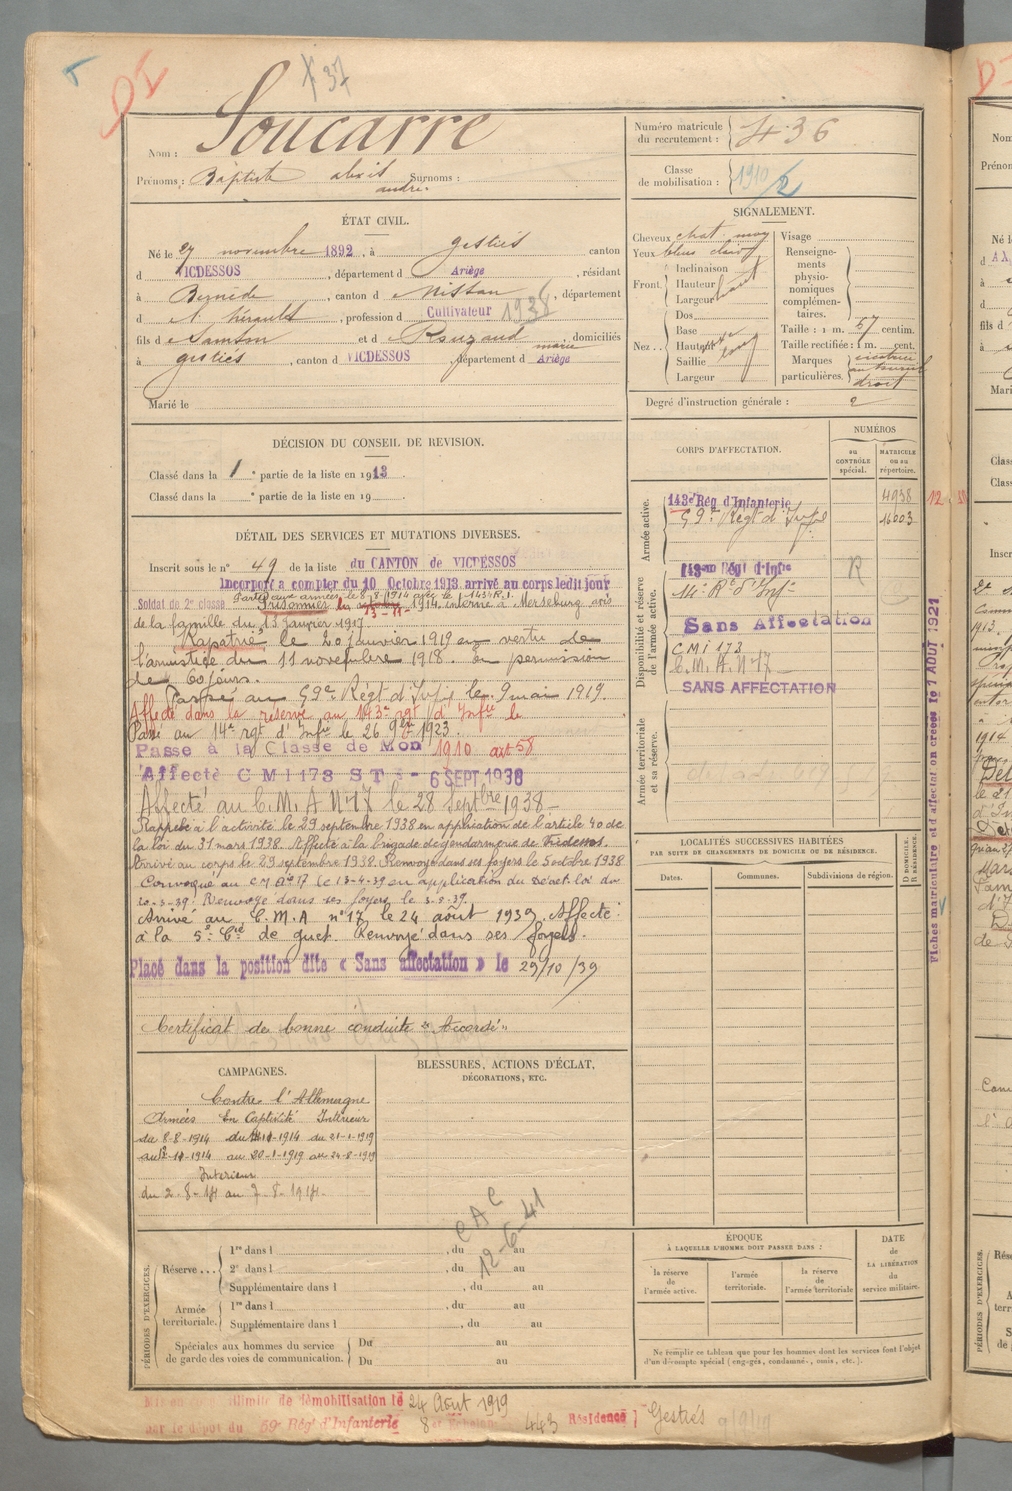 DI
X 37
Nom : Soucarre
Prénoms : Baptiste alexis andré Surnoms :
Numéro matricule du recrutement : 436
Classe de mobilisation : 1910/2
ÉTAT CIVIL.
Né le 27 novembre 1892, à Gestiès canton
d VICDESSOS, département d Ariège, résidant
à , canton d Nissan, département
d l'hérault, profession d Cultivateur 1938
fils d Samson et d Rouzaud marie domiciliés
à gestiès, canton d VICDESSOS département d Ariège
Marié le
SIGNALEMENT.
Cheveux chat. moy
Yeux bleus clairs
Front. Inclinaison
Hauteur haut
Largeur
Nez .. Dos
Base
Hauteur
Saillie
Largeur
Visage
Renseignements physionomiques complémentaires.
Taille : 1 m. 67 centim.
Taille rectifiée : 1 m. cent.
Marques particulières. cicatrice au sourcil droit
Degré d'instruction générale : 2
DÉCISION DU CONSEIL DE REVISION.
Classé dans la 1e partie de la liste en 1913.
Classé dans la e partie de la liste en 19
DÉTAIL DES SERVICES ET MUTATIONS DIVERSES.
Inscrit sous le n° 49 de la liste du CANTON de VICDESSOS
Incorporé a compter du 10 Octobre 1913 arrivé au corps ledit jour
Soldat de 2e classe. Parti aux armées le 8-8-1914 avec le 143e R.I.
Prisonnier le 13-11-1914 interné à Merseburg avis
de la famille du 13 janvier 1917
Rapatrié le 20 janvier 1919 en vertu de
l'armistice du 11 novembre 1918. En permission
de 60 jours.
Passé au 59e Regt d'Infie le 9 mai 1919.
Affecté dans la réserve au 143e rgt d'Infie le
Passé au 14e rgt d'Infie le 26 9bre 1923.
Passe à la Classe de Mon 1910 art 58
Affecté CMI 173 ST 3 - 6 SEPT 1938
Affecté au C.M.A N°17 le 28 Septbre 1938 -
Rappelé à l'activité le 29 septembre 1938 en application de l'article 40 de
la loi du 31 mars 1938. Affecté à la brigade de gendarmerie de Vicdessos.
Arrivé au corps le 29 septembre 1938. Renvoyé dans ses foyers le 5 octobre 1938
Convoqué au CMA n°17 le 13-4-39 en application du Décret loi du
20-3-39. Renvoyé dans ses foyers le 3-5-39.
Arrivé au C.M.A n°17 le 24 août 1939. Affecté
à la 5e Cie de guet. Renvoyé dans ses foyers.
Placé dans la position dite « Sans affectation » le 29/10/39
Certificat de bonne conduite "Accordé"
CORPS D'AFFECTATION.
NUMÉROS
au CONTRÔLE spécial.
MATRICULE ou au répertoire.
Armée active.
143e Rég d'Infanterie 4938
59e Regt d'Infie 16603
Disponibilité et réserve de l'armée active.
143me Régt d'Infie R
14e Rt d'Infie
Sans Affectation
CMI 173
C.M.A. N°17
SANS AFFECTATION
Armée territoriale et sa réserve.
Fiches matriculaire et d'affectation créées le 1 AOUT 1921
LOCALITÉS SUCCESSIVES HABITÉES
PAR SUITE DE CHANGEMENTS DE DOMICILE OU DE RÉSIDENCE.
Dates.
Communes.
Subdivisions de région.
D DOMICILE. R RÉSIDENCE.
CAMPAGNES.
Contre l'Allemagne
Armées En Captivité Intérieur
du 8-8-1914 du -1914 du 21-1-1919
au -1914 au 20-1-1919 au 24-8-1919
Intérieur
du 2-8-14 au 7-8-1914.
BLESSURES, ACTIONS D'ÉCLAT,
DÉCORATIONS, ETC.
CAC
12-6-41
PÉRIODES D'EXERCICES.
Réserve ... 1re dans l , du au
2e dans l , du au
Supplémentaire dans l , du au
Armée territoriale. 1re dans l , du au
Supplémentaire dans l , du au
Spéciales aux hommes du service de garde des voies de communication. Du au
Du au
ÉPOQUE
À LAQUELLE L'HOMME DOIT PASSER DANS :
la réserve de l'armée active.
l'armée territoriale.
la réserve de l'armée territoriale
DATE de LA LIBÉRATION du service militaire.
Ne remplir ce tableau que pour les hommes dont les services font l'objet
d'un décompte spécial (engagés, condamnés, omis, etc.).
Mis en congé illimité de démobilisation le 24 Août 1919
par le dépôt du 59 Rég d'Infanterie 8e Echelon 443 Résidence Gestiès